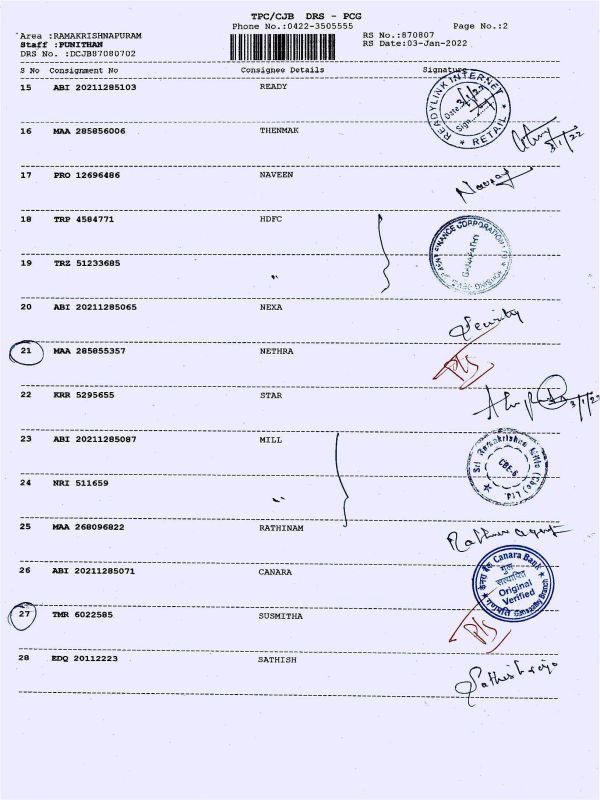 TPC/CJB DRS - PCG
Phone No.:0422-3505555 Page No.:2
Area :RAMAKRISHNAPURAM RS No.:870807
Staff :PUNITHAN RS Date:03-Jan-2022
DRS No. :DCJB87080702
S No Consignment No Consignee Details Signature
15 ABI 20211285103 READY
READYLINK INTERNET
Date: 3/1/22
Sign.
★ RETAIL ★
16 MAA 285856006 THENMAK
3/1/22
17 PRO 12696486 NAVEEN
18 TRP 4584771 HDFC
GANAPATHY
19 TRZ 51233685 "
20 ABI 20211285065 NEXA
Security
21 MAA 285855357 NETHRA
P/S
22 KRR 5295655 STAR
3/1/22
23 ABI 20211285087 MILL
Sri Ramakrishna Mills (Cbe) Ltd.
CBE-6
24 NRI 511659 "
25 MAA 268096822 RATHINAM
26 ABI 20211285071 CANARA
केनरा बैंक Canara Bank
मूल
सत्यापित
Original
Verified
गणपति Ganapathy Branch
27 TMR 6022585 SUSMITHA
P/S
28 EDQ 20112223 SATHISH